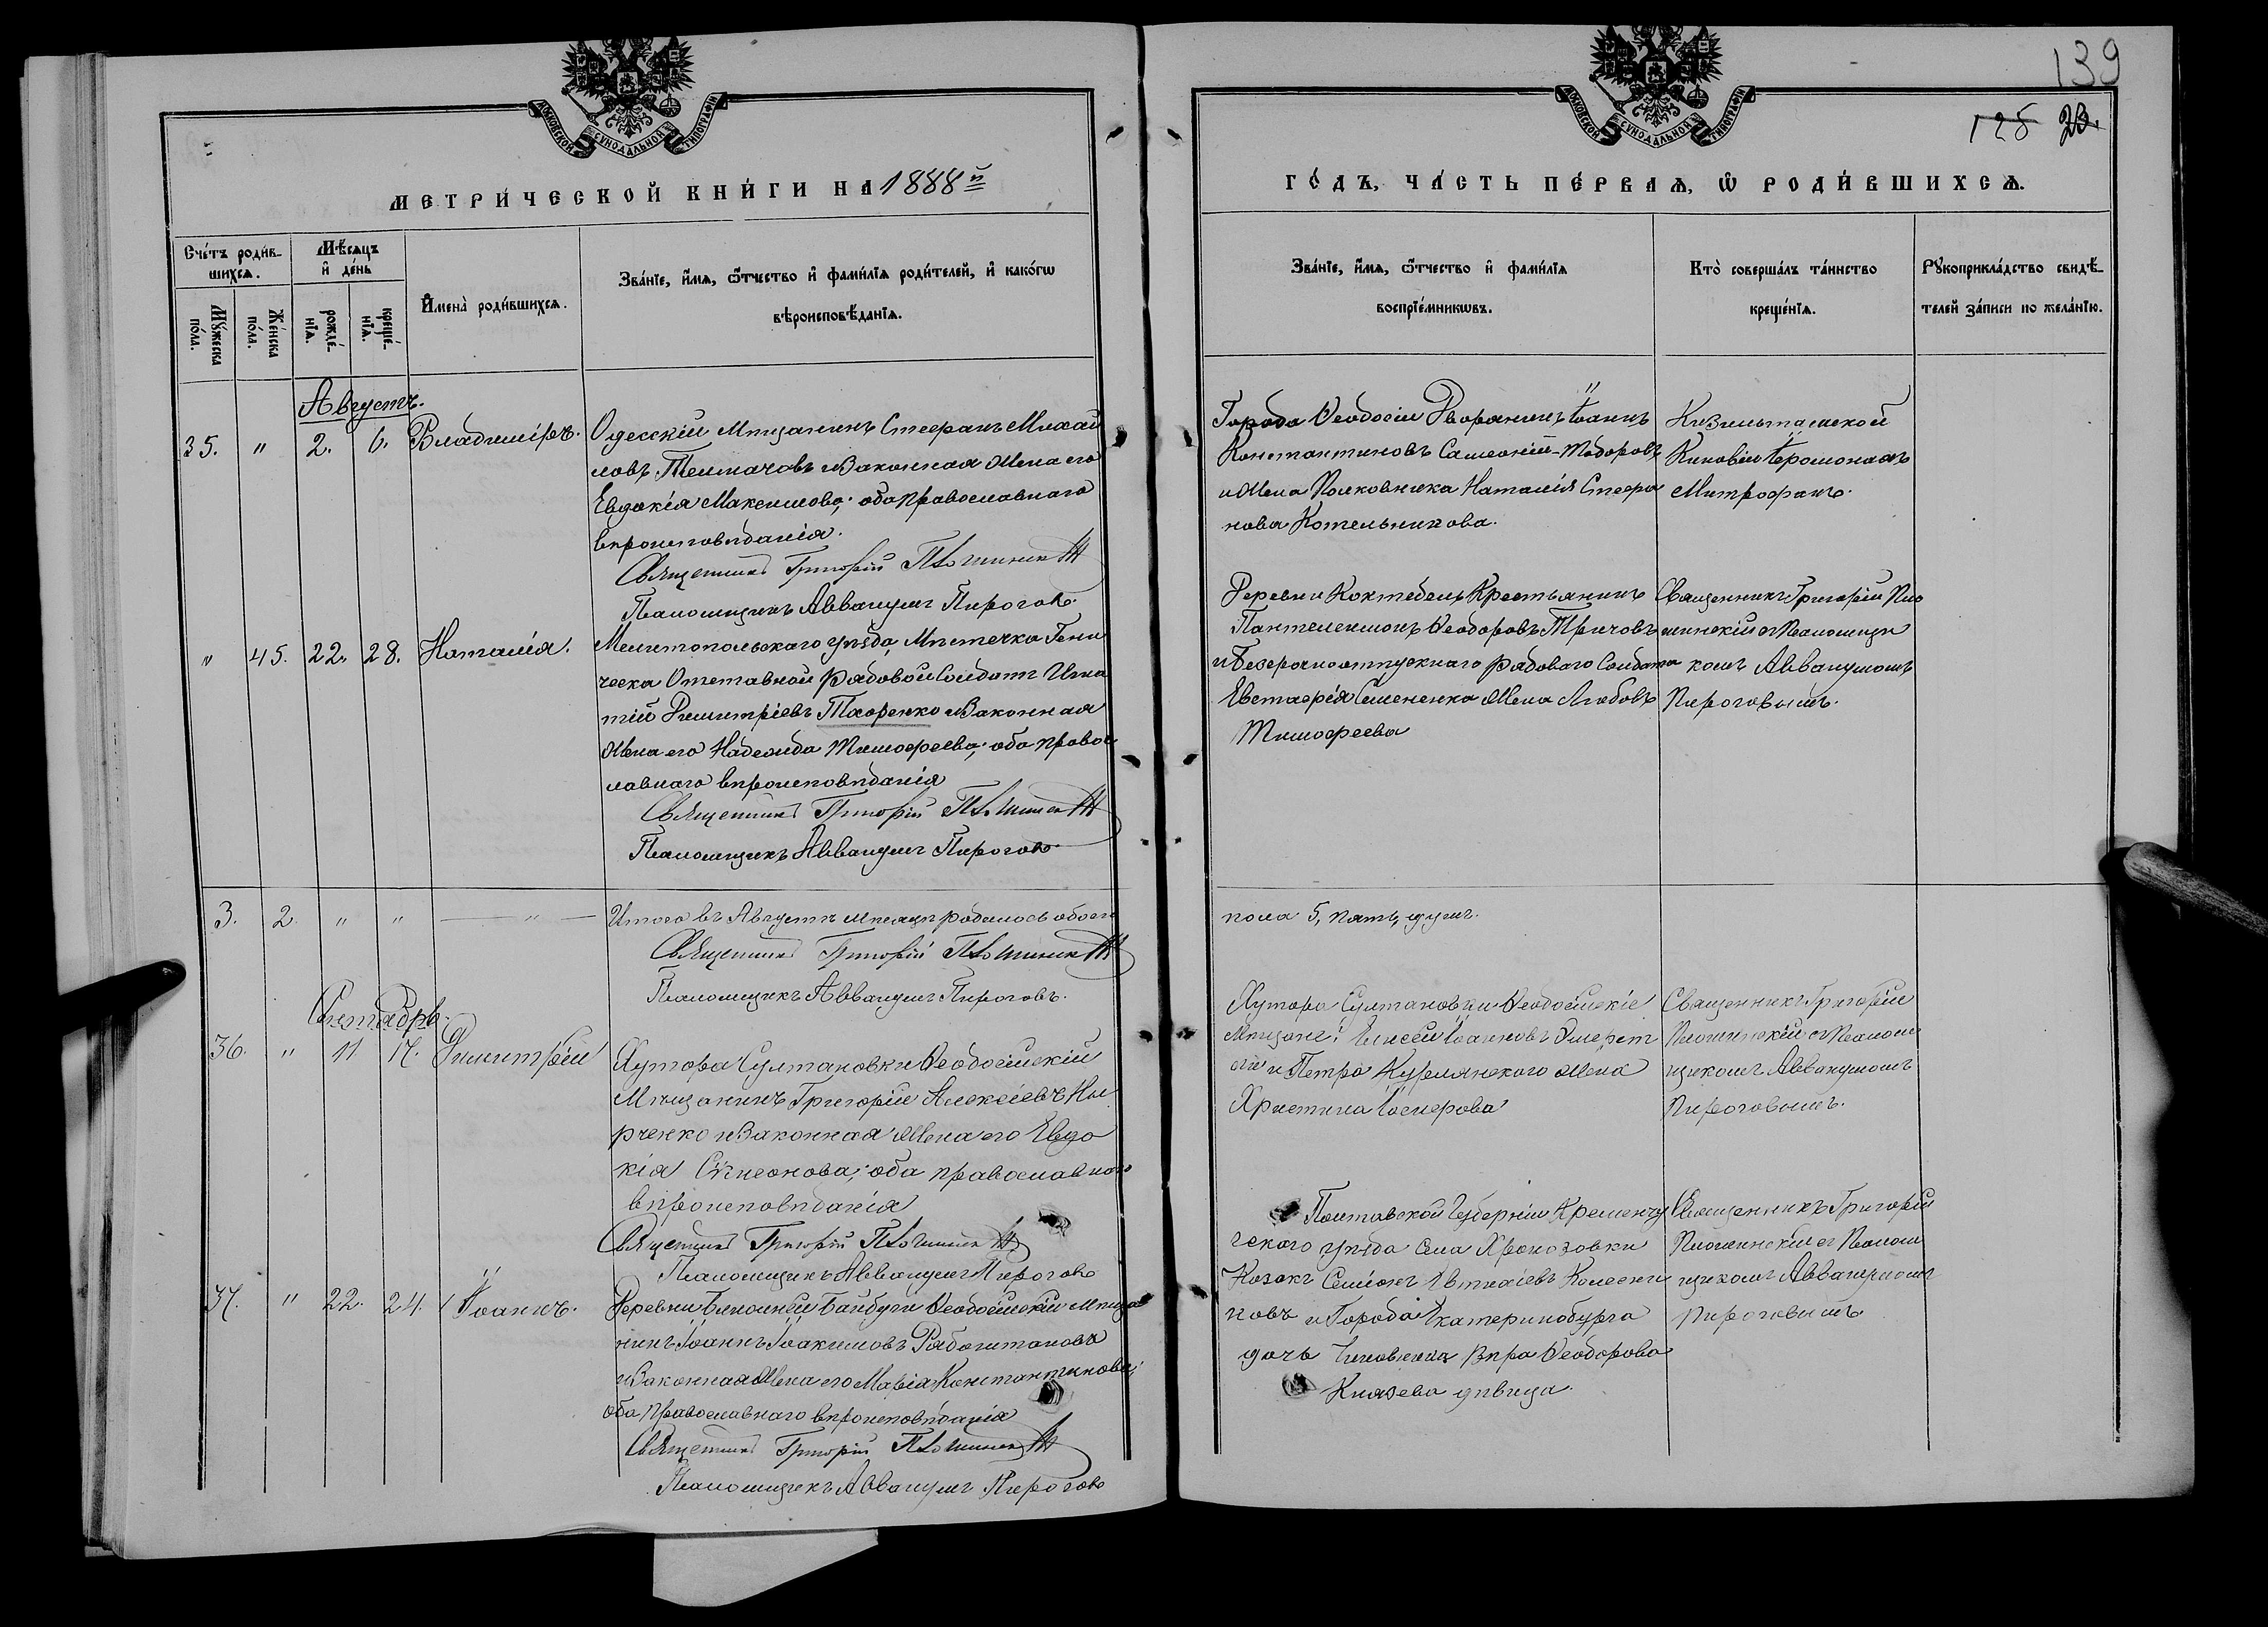 139
125 23.
МОСКОВСКОЙ СѴНОДАЛЬНОЙ ТИПОГРАФІИ
МОСКОВСКОЙ СѴНОДАЛЬНОЙ ТИПОГРАФІИ
МЕТРИ́ЧЕСКОЙ КНИ́ГИ НА 1888й
ГО́ДЪ, ЧА́СТЬ ПЕ́РВАѦ, Ѡ҆ РОДИ́ВШИХСѦ.
Сче́тъ роди́в-
шихсѧ.
Мѹ́жеска по́ла.
Же́нска по́ла.
Мѣ́сѧцъ
и҆ де́нь
рожде́-
нїѧ.
креще́-
нїѧ.
И҆мена̀ роди́вшихсѧ.
Зва́нїе, и҆́мѧ, ѻ҆́тчество и҆ фами́лїѧ роди́телей, и҆ како́гѡ
вѣроисповѣ́данїѧ.
Зва́нїе, и҆́мѧ, ѻ҆́тчество и҆ фами́лїѧ
воспрїе́мникѡвъ.
Кто̀ соверша́лъ та́инство
креще́нїѧ.
Рѹкоприкла́дство свидѣ́-
телей за́писи по жела́нїю.
Августъ.
35. " 2. 6. Владиміръ.
Одесскій Мѣщанинъ Стефанъ Михай
ловъ Телмачовъ и Законная Жена его
Евдокія Максимова; оба православнаго
вѣроисповѣданія.
Священникъ Григорій
Псаломщикъ Аввакумъ Пироговъ.
Города Ѳеодосіи Дворянинъ Іоаннъ
Константиновъ
и Жена Полковника Наталія Стефа
нова Котельникова.
Кизильташской
Киновіи Іеромонахъ
Митрофанъ.
" 45. 22. 28. Наталія.
Мелитопольскаго уѣзда, Мѣстечка Гени
ческа Отставной рядовой Солдатъ Игна
тій Димитріевъ и Законная
Жена его Надежда Тимофеева; оба правос
лавнаго вѣроисповѣданія
Священникъ Григорій
Псаломщикъ Аввакумъ Пироговъ
Деревни Коктебель Крестьянинъ
Пантелеимонъ Ѳеодоровъ
и Безсрочноотпускнаго рядоваго Солдата
Евстафія Семененка Жена Любовь
Тимофеева
Священникъ Григорій
съ Псаломщи
комъ Аввакумомъ
Пироговымъ.
3. 2. " " — " —
Итого въ Августѣ мѣсяцѣ родилось обоего
пола 5, пять, душъ.
Священникъ Григорій
Псаломщикъ Аввакумъ Пироговъ.
Сентябрь.
36. " 11 17. Димитрій
Хутора Султановки Ѳеодосійскій
Мѣщанинъ Григорій Алексіевъ
и Законная Жена его Евдо
кія Сѵмеонова; оба православнаго
вѣроисповѣданія
Священникъ Григорій
Псаломщикъ Аввакумъ Пироговъ
Хутора Султановки Ѳеодосійскіе
Мѣщане: Елисей Іоанновъ
и Петра Курлянскаго Жена
Христина
Священникъ Григорій
съ Псалом
щикомъ Аввакумомъ
Пироговымъ.
37. " 22. 24. Іоаннъ.
Деревни Ближней Байбуги Ѳеодосійскій мѣща
нинъ Іоаннъ Іоакимовъ Рябоштановъ
и Законная Жена его Марія Константинова;
оба православнаго вѣроисповѣданія
Священникъ Григорій
Псаломщикъ Аввакумъ Пироговъ
Полтавской Губерніи Кременчу
гскаго уѣзда Села
Козакъ Семіонъ Колесни
ковъ и Города Екатеринобурга
дочь Чиновника Вѣра Ѳеодорова
Князева дѣвица.
Священникъ Григорій
съ Псалом
щикомъ Аввакумомъ
Пироговымъ